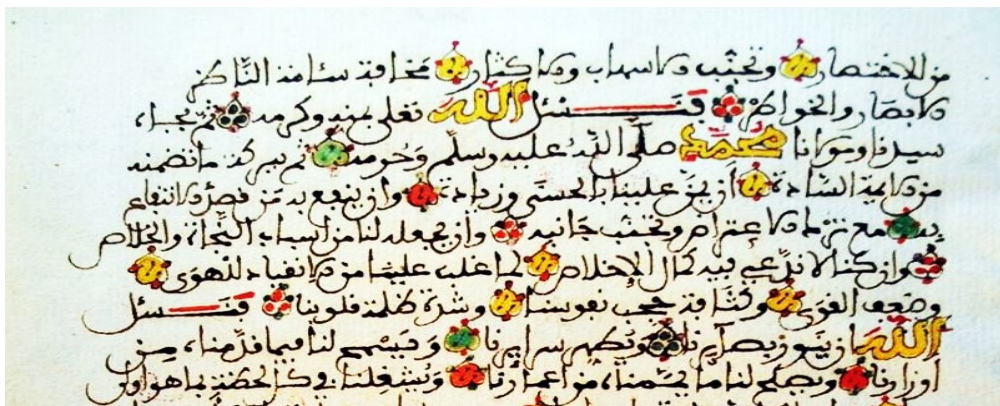 من الاختصار وتجنب الاسهاب والاكثار مخافة سئامة الناظر
الابصار والخواطر فنسئل الله تعلى بمنه وكرمه ثم بجاه
سيدنا ومولانا محمد صلى الله عليه وسلم وحرمه ثم ببركة ما تضمنه
من الايمة السادة ان يمن علينا بالحسنى وزيادة وان ينفع به من قصد الانتفاع
به مع ترك الاعتراض وتجنب جانبه وان يجعله لنا من اسباب النجاة والخلاص
وان كنا لا ندعي فيه كمال الإخلاص لما غلب علينا من الانقياد للهوى
وضعف القوى وكثافة حجب نفوسنا وشدة ظلمة قلوبنا فنسئل
الله ان ينور بصآيرنا ويطهر سرايرنا ويسمح لنا فيما قدمنا من
اوزارنا ويصلح لنا ما من اعمارنا ويشغلنا في كل لحظة بما هو اولى